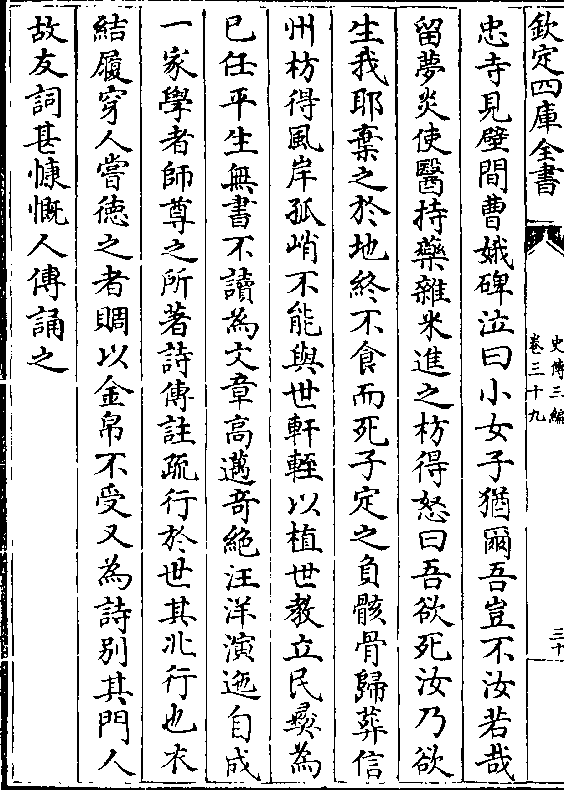 欽定四庫全書
史傳三編
卷三十九
三十
忠寺見壁間曹娥碑泣曰小女子猶爾吾豈不汝若哉
留夢炎使醫持藥雜米進之枋得怒曰吾欲死汝乃欲
生我耶棄之於地終不食而死子定之負骸骨歸葬信
州枋得風岸孤峭不能與世軒輊以植世教立民彛為
已任平生無書不讀為文章高邁奇絶汪洋演迤自成
一家學者師尊之所著詩傳註疏行於世其北行也衣
結履穿人嘗德之者賙以金帛不受又為詩别其門人
故友詞甚慷慨人傳誦之